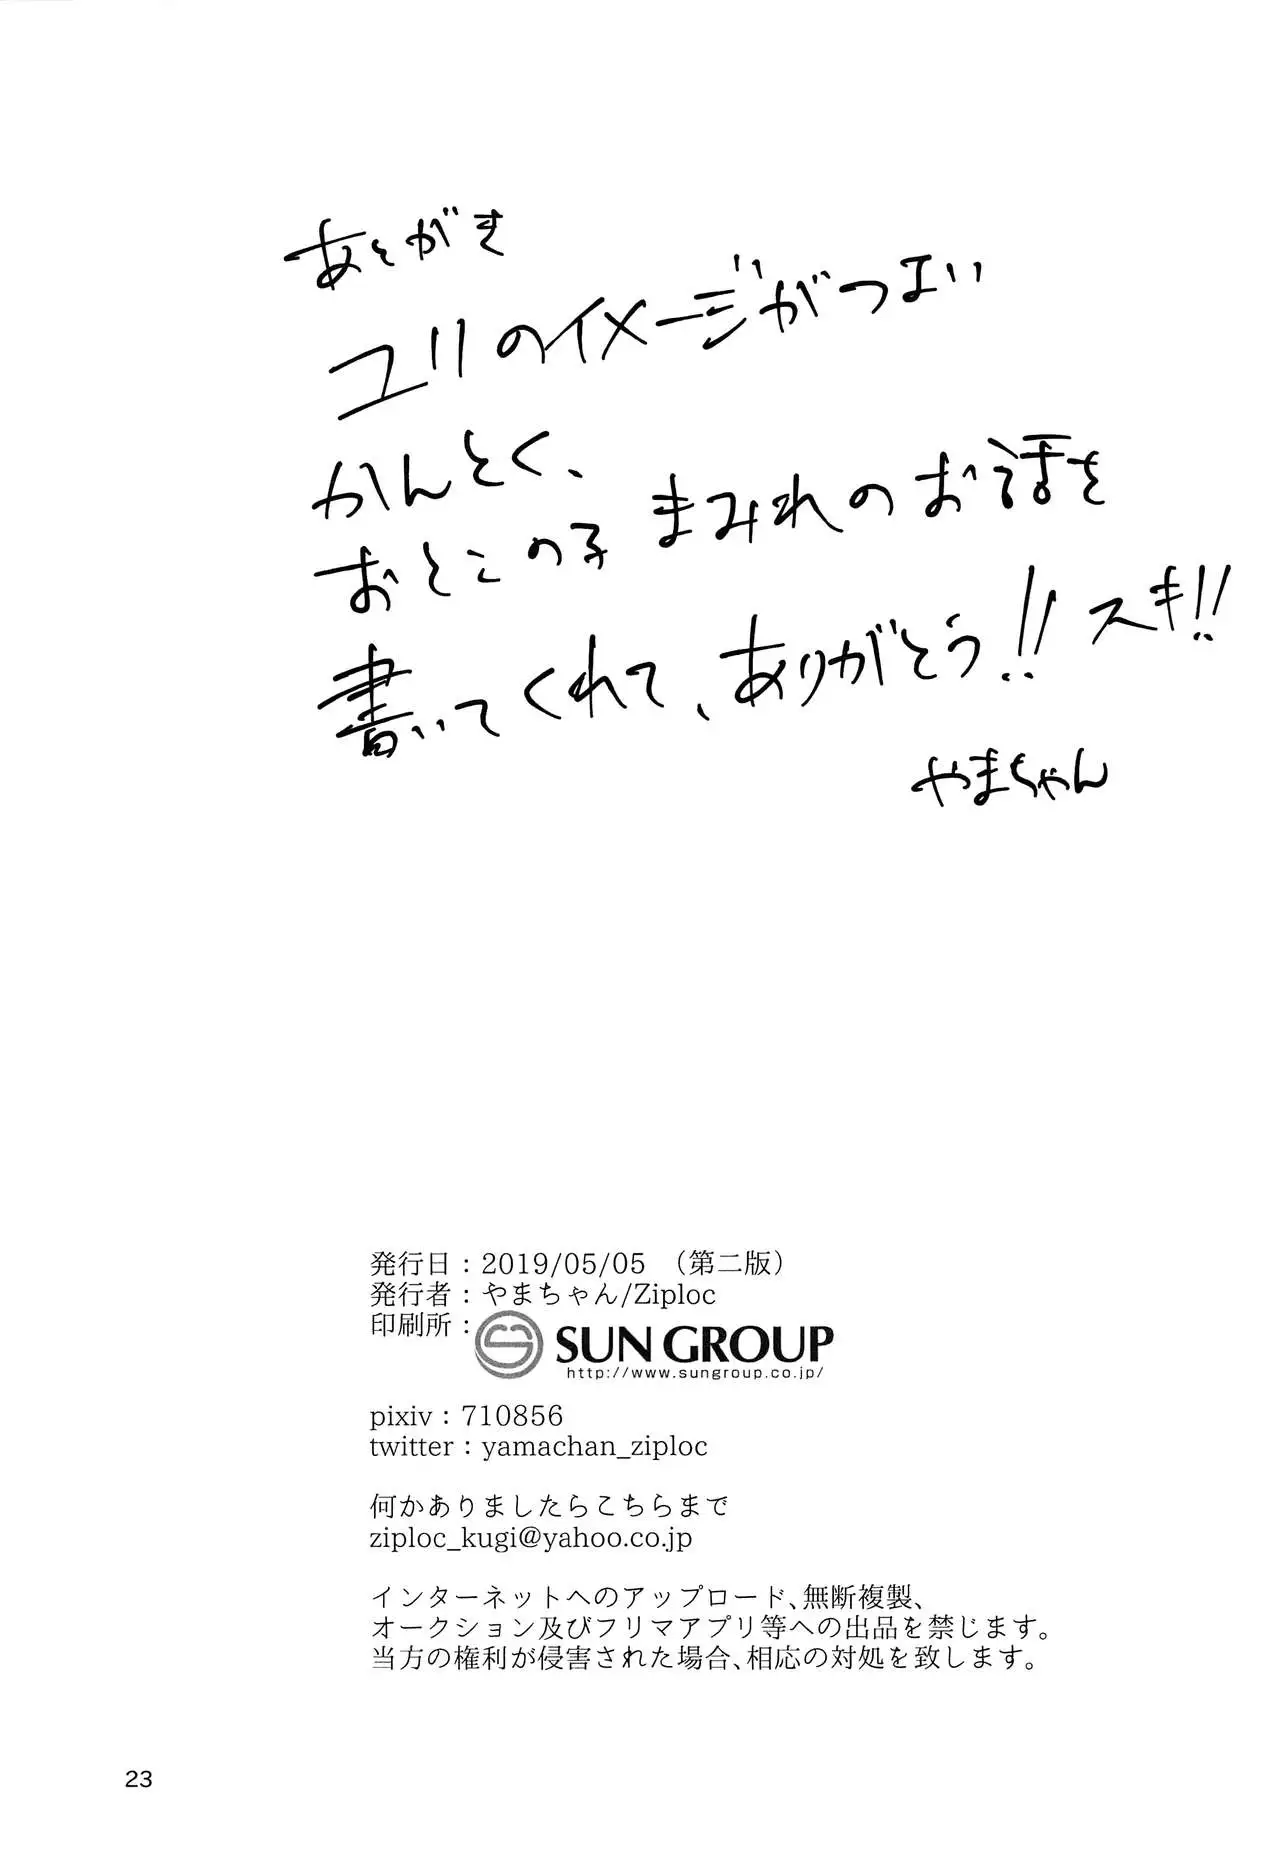 あとがき
ユリのイメージがつよい
かんとく、
おとこの子まみれのお話を
書いてくれて、ありがとう!! スキ!!
やまちゃん
発行日：2019/05/05　（第二版）
発行者：やまちゃん/Ziploc
印刷所：SUN GROUP
http://www.sungroup.co.jp/
pixiv：710856
twitter：yamachan_ziploc
何かありましたらこちらまで
ziploc_kugi@yahoo.co.jp
インターネットへのアップロード、無断複製、
オークション及びフリマアプリ等への出品を禁じます。
当方の権利が侵害された場合、相応の対処を致します。
23